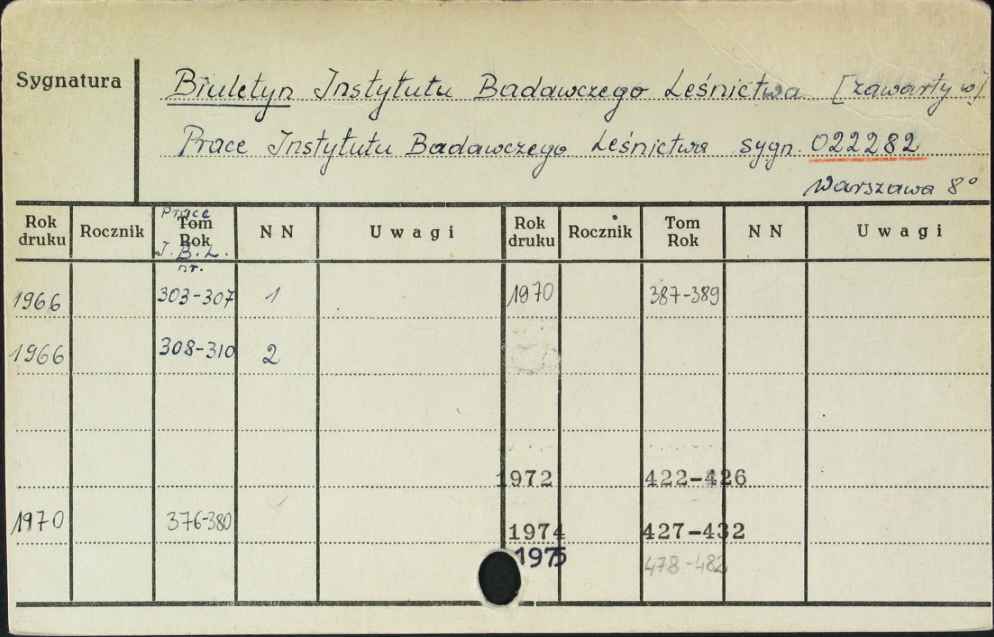 Sygnatura
Biuletyn Instytutu Badawczego Leśnictwa [zawarty w]
Prace Instytutu Badawczego Leśnictwa sygn. 022282
Warszawa 8°
Rok druku Rocznik Prace Tom Rok I.B.L. nr. NN Uwagi Rok druku Rocznik Tom Rok NN Uwagi
1966 303-307 1 1970 387-389
1966 308-310 2
1972 422-426
1970 376-380 1974 427-432
1975 478-482